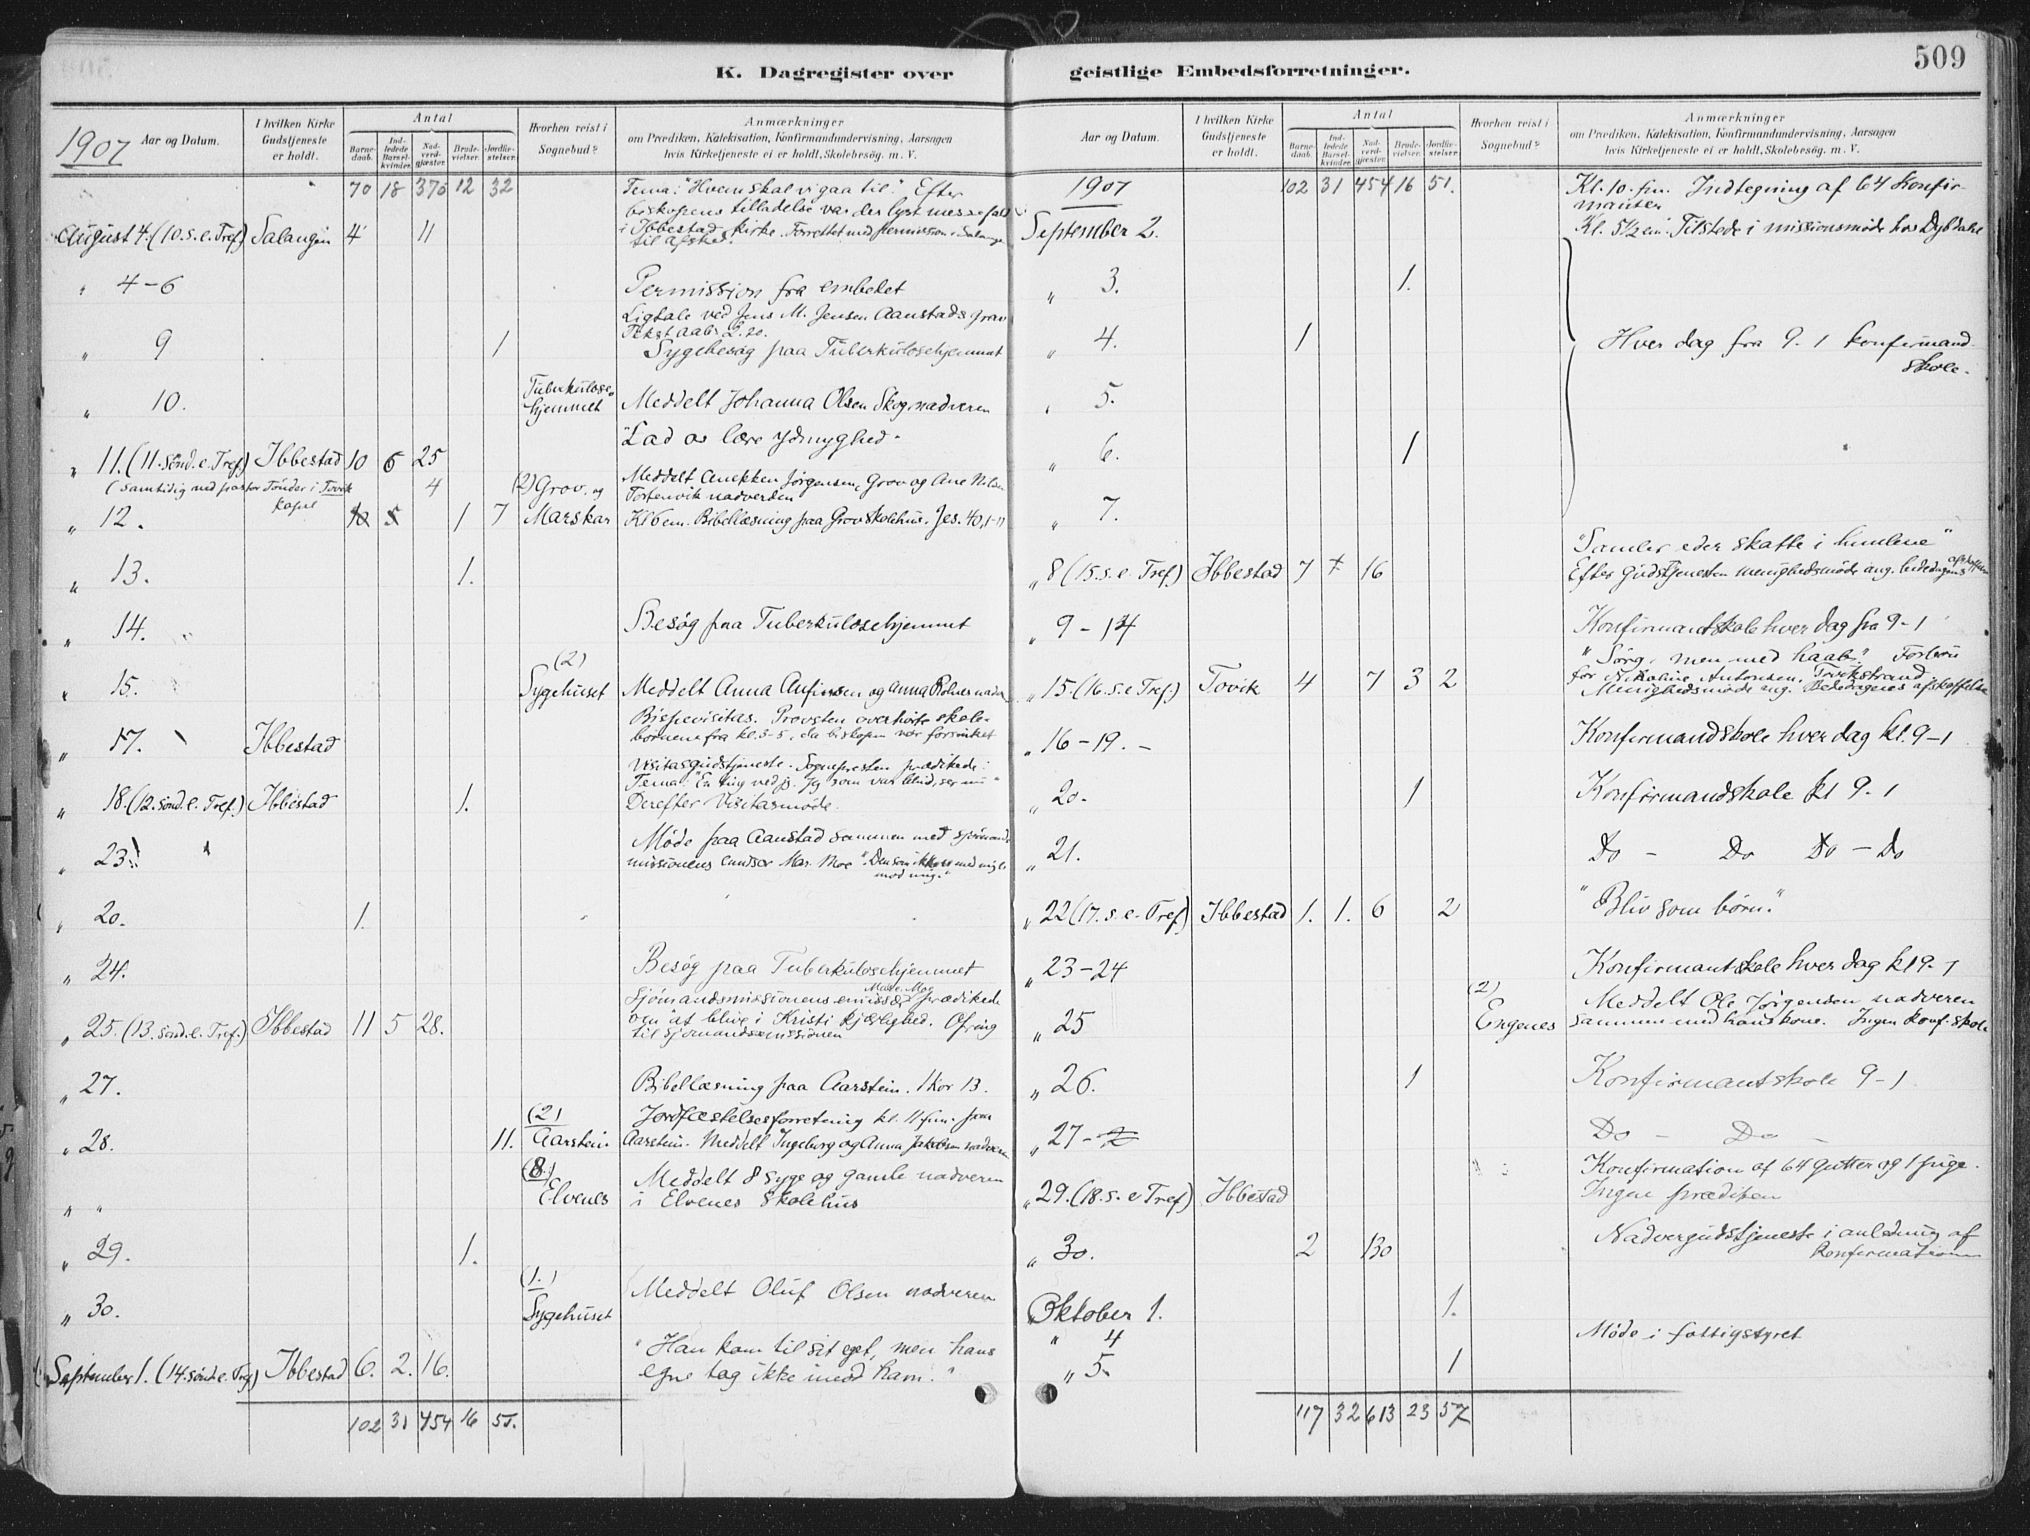 K. Dagregister over
1907
Aar og Datum.
I hvilken Kirke Gudstjeneste er holdt.
Antal
Barnedaab.
Indledede Barselkvinder.
Nadverdgjæster.
Brudevielser.
Jordfæstelser.
Hvorhen reist i Sognebud?
Anmærkninger
om Prædiken, Katekisation, Konfirmandundervisning, Aarsagen
hvis Kirketjeneste ei er holdt, Skolebesøg. m. V.
70 18 370 12 32 Tema: "Hvem skal vi gaa til." Efter
biskopens tilladelse var der lyst messefald
August 4. (10. s. e. Tref) Salangen 4 11 i Ibbestad kirke. Forrettet med permission i Salangen
til afsked.
" 4-6 Permission fra embedet
Ligtale ved Jens M. Jensen Aanstads grav
Tekst aab. 2.20.
" 9 1 Sygebesøg paa Tuberkulosehjemmet
" 10. Tuberkulosehjemmet Meddelt Johanna Olsen Skog nadveren
"Lad os lære ydmyghed"
" 11. (11. sønd. e. Tref.) Ibbestad 10 6 25
(samtidig med pastor Tønder i Tovik kapel 4 (2) Grov og Meddelt Anekken Jørgensen, Grov og Ane Nilsen
nadverden
" 12. 10 5 1 7 Marskar Kl 6 em. Bibellæsning paa Grov skolehus. Jes. 40, 1-11
" 13. 1.
" 14. Besøg paa Tuberkulosehjemmet
" 15. (2) Sygehuset Meddelt Anna Anfinsen og Anna
Bispevisitas. Provsten overhørte skole-
" 17. Ibbestad børnene fra kl. 3-5, da biskopen var forsinket
Visitasgudstjeneste. Sognepresten prædikede:
Tema: "En ting ved jeg. Jeg som var blind, ser nu"
" 18. (12. sønd. e. Tref.) Ibbestad 1. Derefter Visitasmøde.
Møde paa Aanstad sammen med sjømands-
" 23. missionens emissær Mar. Moe. "Den som ikke er med mig er
mod mig."
" 20. 1.
" 24. Besøg paa Tuberkulosehjemmet
Sjømandsmissionens emissær Mar. Moe prædikede
" 25. (13. sønd. e. Tref.) Ibbestad 11 5 28. om "at blive i Kristi kjærlighed. Ofring
til sjømandsmissionen
" 27. Bibellæsning paa Aarstein. 1 Kor 13.
(2) Jordfæstelsesforretning kl. 11 fm. paa
" 28. 11. Aarstein Aarstein. Meddelt Ingeborg og Anna Jakobsen nadveren
(8.) Meddelt 8 syge og gamle nadveren
" " Elvenes i Elvenes skolehus
" 29. 1.
(1.) Meddelt Oluf Olsen nadveren
" 30. Sygehuset
"Han kom til sit eget, men hans
September 1. (14. sønd. e. Tref) Ibbestad 6. 2. 16. egne tog ikke imod ham."
102 31 454 16 51.
geistlige Embedsforretninger.
509
Aar og Datum.
I hvilken Kirke Gudstjeneste er holdt.
Antal
Barnedaab.
Indledede Barselkvinder.
Nadverdgjæster.
Brudevielser.
Jordfæstelser.
Hvorhen reist i Sognebud?
Anmærkninger
om Prædiken, Katekisation, Konfirmandundervisning, Aarsagen
hvis Kirketjeneste ei er holdt, Skolebesøg. m. V.
1907 102 31 454 16 51. Kl. 10. fm. Indtegning af 64 Konfir-
manter
September 2. Kl. 5½ em. Tilstede i missionsmøde hos Dybdahl
" 3. 1.
" 4. 1 Hver dag fra 9-1 konfirmand-
skole.
" 5.
" 6. 1
" 7.
"Samler eder skatte i himlene"
" 8 (15. s. e. Tref.) Ibbestad 7 16 Efter Gudstjenesten menighedsmøde ang. bededagens afskaffelse
" 9-14 Konfirmantskole hver dag fra 9-1
"Sørg, men med haab".
for Nikoline Antonsen, Tovikstrand
" 15 (16. s. e Tref.) Tovik 4 7 3 2 Menighedsmøde ang. Bededagens afskaffelse
" 16-19. Konfirmandskole hver dag kl. 9-1
" 20. 1 Konfirmandskole kl 9-1
" 21. Do - Do Do - Do
" 22 (17. s. e. Tref) Ibbestad 1. 1. 6 2 "Bliv som børn."
" 23-24 Konfirmantskole hver dag kl 9-1
(2) Meddelt Ole Jørgensen nadveren
" 25 Engenes sammen med hans kone. Ingen konf. skole
" 26. 1 Konfirmantskole 9-1
" 27- Do - Do -
Konfirmation af 64 gutter og 1 pige.
" 29. (18. s. e Tref) Ibbestad Ingen prædiken
Nadvergudstjeneste i anledning af
" 30. 2 130 konfirmationen
Oktober 1. 1.
" 4 Møde i fattigstyret
" 5. 1
117 32 613 23 57